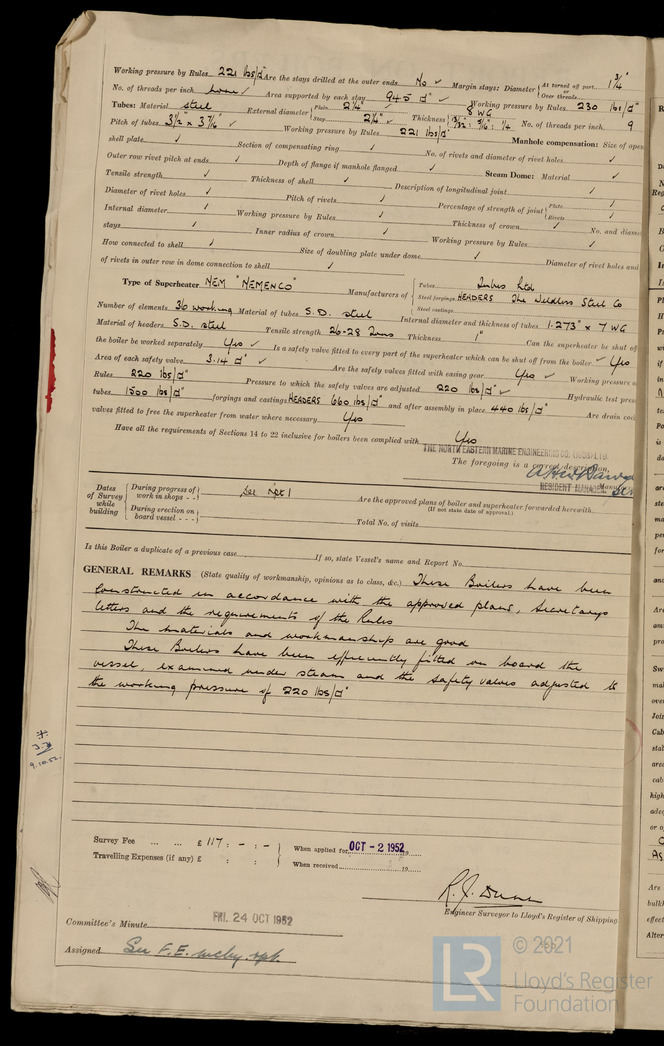 Working pressure by Rules 221 lbs/□" Are the stays drilled at the outer ends No ✓ Margin stays: Diameter { At turned off part, 1 3/4" or Over threads
No. of threads per inch ✓ Area supported by each stay 945 □" ✓ Working pressure by Rules 230 lbs/□"
Tubes: Material steel External diameter { Plain 2 1/4" ✓ Stay 2 1/4" ✓ Thickness { 8 WG 5/16 : 1/4 No. of threads per inch 9
Pitch of tubes 3 1/2" x 3 7/16" ✓ Working pressure by Rules 221 lbs/□" Manhole compensation: Size of open
shell plate ✓ Section of compensating ring ✓ No. of rivets and diameter of rivet holes ✓
Outer row rivet pitch at ends ✓ Depth of flange if manhole flanged ✓ Steam Dome: Material ✓
Tensile strength ✓ Thickness of shell ✓ Description of longitudinal joint ✓
Diameter of rivet holes ✓ Pitch of rivets ✓ Percentage of strength of joint { Plate ✓ Rivets ✓
Internal diameter ✓ Working pressure by Rules ✓ Thickness of crown ✓ No. and diame
stays ✓ Inner radius of crown ✓ Working pressure by Rules ✓
How connected to shell ✓ Size of doubling plate under dome ✓ Diameter of rivet holes and
of rivets in outer row in dome connection to shell ✓
Type of Superheater NEM "NEMENCO" Manufacturers of { Tubes Tubes Ltd
Steel forgings HEADERS The Weldless Steel Co
Steel castings
Number of elements 36 working Material of tubes S.D. steel Internal diameter and thickness of tubes 1.273" x 7 WG
Material of headers S.D. steel Tensile strength 26-28 Tons Thickness 1" Can the superheater be shut off
the boiler be worked separately Yes ✓ Is a safety valve fitted to every part of the superheater which can be shut off from the boiler ✓ Yes
Area of each safety valve 3.14 □" ✓ Are the safety valves fitted with easing gear Yes ✓ Working pressure
Rules 220 lbs/□" Pressure to which the safety valves are adjusted 220 lbs/□" ✓ Hydraulic test pres
tubes 1500 lbs/□" forgings and castings HEADERS 660 lbs/□" and after assembly in place 440 lbs/□" Are drain coc
valves fitted to free the superheater from water where necessary Yes
Have all the requirements of Sections 14 to 22 inclusive for boilers been complied with Yes
THE NORTH EASTERN MARINE ENGINEERING CO. (1938) LTD.
The foregoing is a correct description,
RESIDENT MANAGER
Dates of Survey while building { During progress of work in shops - - } See Rpt 1 Are the approved plans of boiler and superheater forwarded herewith
(If not state date of approval.)
{ During erection on board vessel - - - } Total No. of visits
Is this Boiler a duplicate of a previous case If so, state Vessel's name and Report No.
GENERAL REMARKS (State quality of workmanship, opinions as to class, &c.) These Boilers have been
constructed in accordance with the approved plans, Secretarys
letters and the requirements of the Rules
The materials and workmanship are good
These Boilers have been efficiently fitted on board the
vessel, examined under steam and the safety valves adjusted to
the working pressure of 220 lbs/□"
9.10.52.
Survey Fee ... ... £ 117 : - : - When applied for, OCT - 2 1952 19
Travelling Expenses (if any) £ : : When received 19
R. J. Dunn
Engineer Surveyor to Lloyd's Register of Shipping
Committee's Minute FRI. 24 OCT 1952
Assigned See F.E. mchy. rpt.
LR
© 2021
Lloyd's Register
Foundation